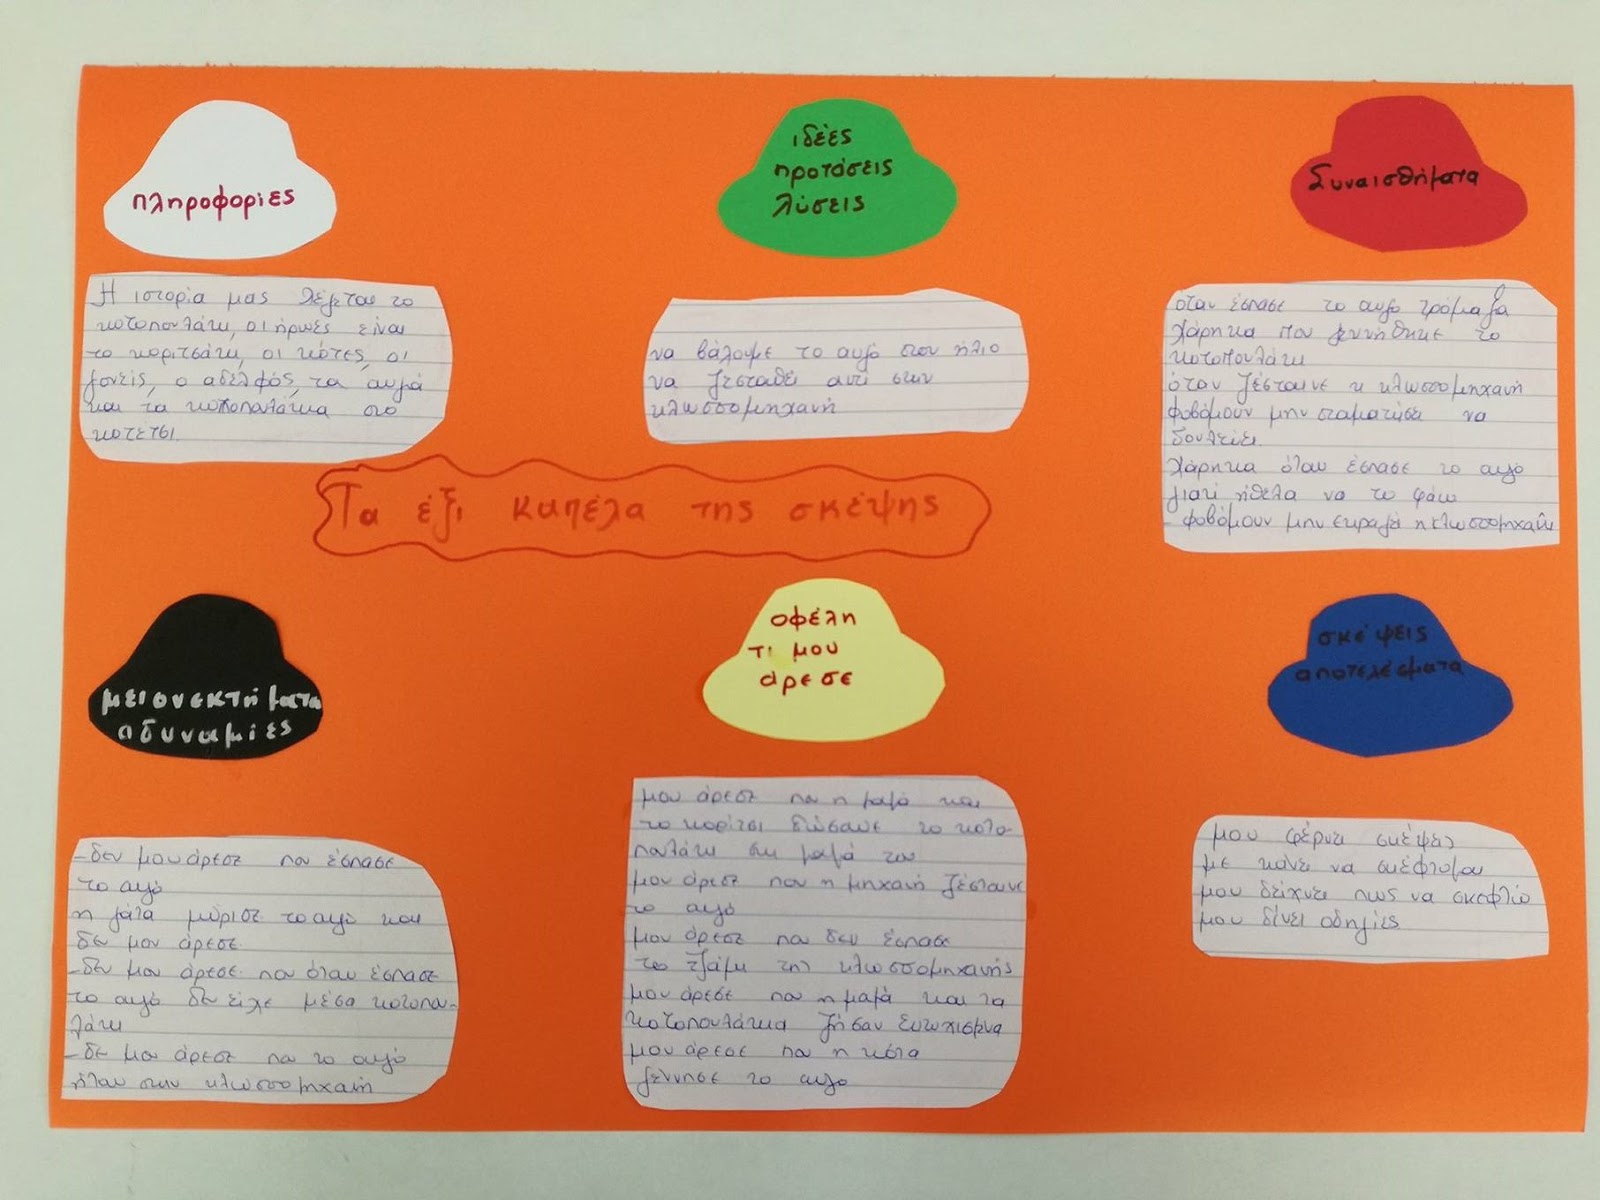 πληροφορίες
Η ιστορία μας λέγεται το
κοτοπουλάκι, οι ήρωες είναι
το κοριτσάκι, οι κότες, οι
γονείς, ο αδελφός, τα αυγά
και τα κοτοπουλάκια στο
κοτέτσι.
ιδέες
προτάσεις
λύσεις
να βάλουμε το αυγό στον ήλιο
να ζεσταθεί αντί στην
κλωσσομηχανή
Συναισθήματα
όταν έσπασε το αυγό τρόμαξα
Χάρηκα που γεννήθηκε το
κοτοπουλάκι
όταν ζέσταινε κ κλωσσομηχανή
φοβόμουν μην σταματήσει να
δουλεύει
Χάρηκα όταν έσπασε το αυγό
γιατί ήθελα να το φάω
- φοβόμουν μην εκραγεί η κλωσσομηχανή
Τα έξι καπέλα της σκέψης
μειονεκτήματα
αδυναμίες
- δεν μου άρεσε που έσπασε
το αυγό
η γάτα μύρισε το αυγό και
δεν μου άρεσε
- δεν μου άρεσε που όταν έσπασε
το αυγό δεν είχε μέσα κοτοπου-
λάκι
- δε μου άρεσε που το αυγό
ήταν στην κλωσσομηχανή
οφέλη
τι μου
άρεσε
μου άρεσε που η μαμά και
το κορίτσι δώσανε το κοτο-
πουλάκι στη μαμά του
μου άρεσε που η μηχανή ζέσταινε
το αυγό
μου άρεσε που δεν έσπασε
το τζάμι της κλωσσομηχανής
μου άρεσε που η μαμά και τα
κοτοπουλάκια ζήσαν ευτυχισμένα
μου άρεσε που η κότα
γέννησε το αυγό
σκέψεις
αποτελέσματα
μου φέρνει σκέψεις
με κάνει να σκέφτομαι
μου δείχνει πως να σκεφτώ
μου δίνει οδηγίες